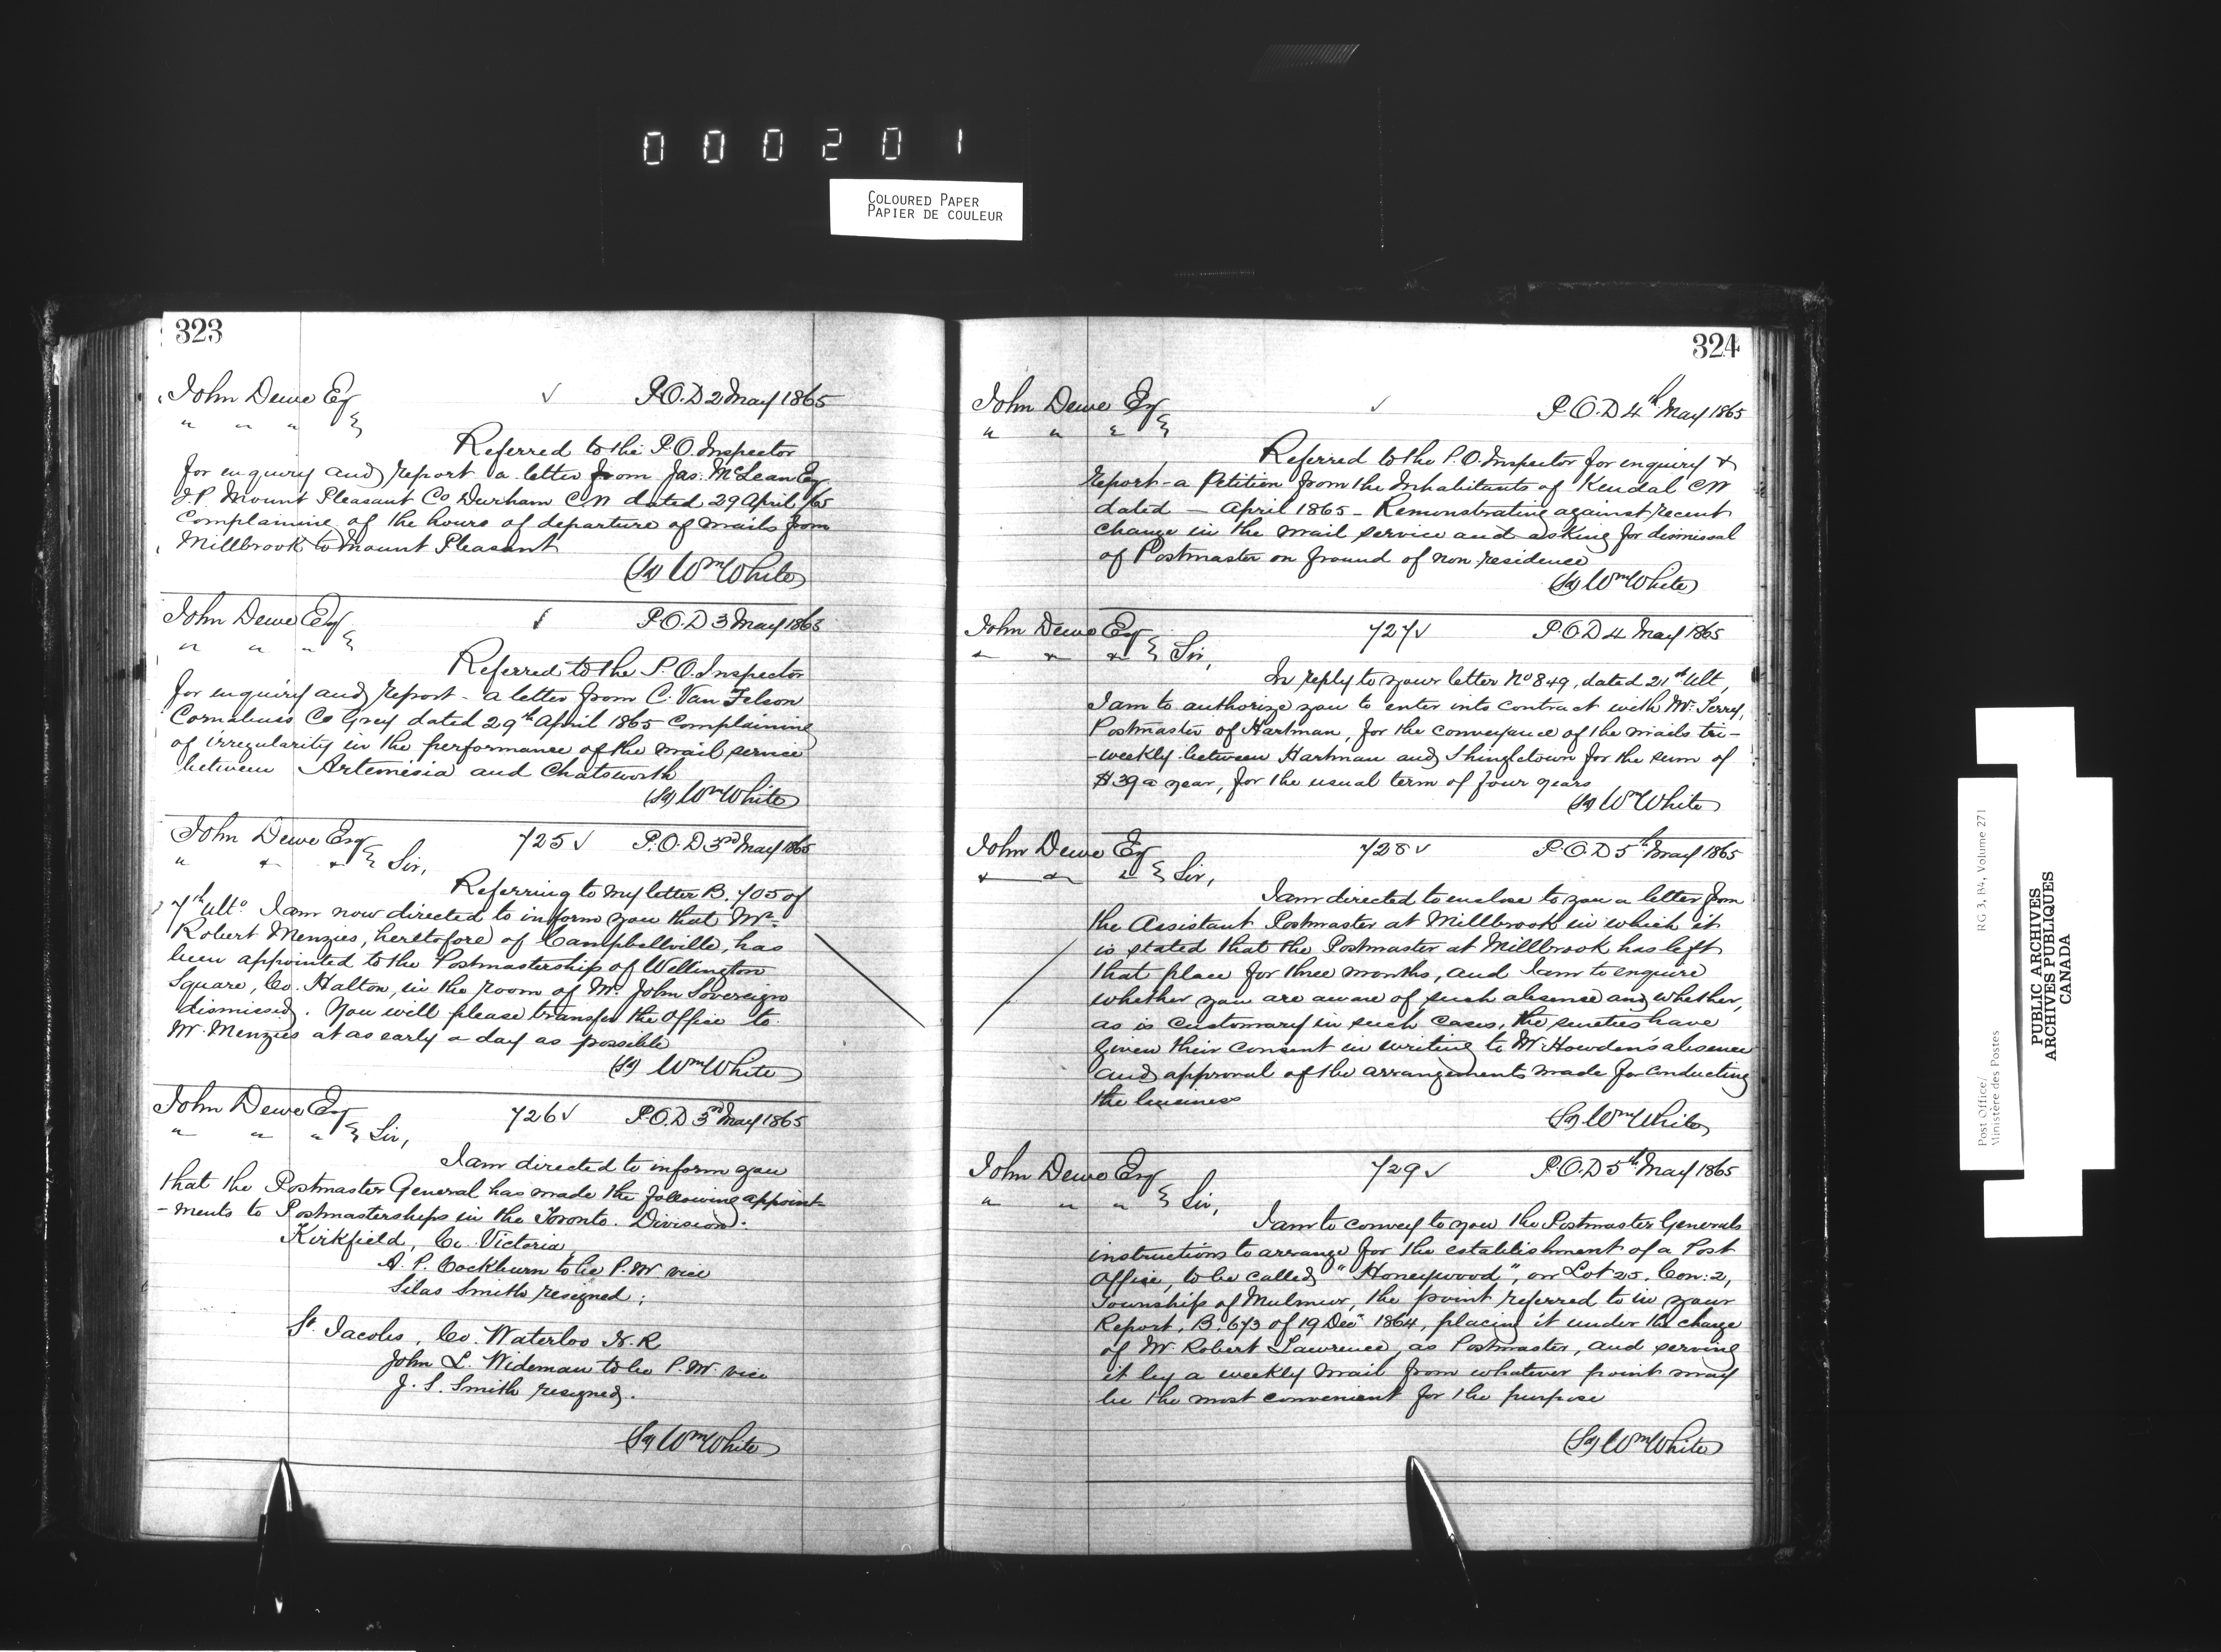 000201
COLOURED PAPER
PAPIER DE COULEUR
323
John Dewe Esq ✓ P.O.D 2 May 1865
" " "
Referred to the P.O. Inspector
for enquiry and report a letter from Jas. McLean Esq
J.P. Mount Pleasant Co Durham C.W dated 29 April /65
Complaining of the hours of departure of mails from
Millbrook to Mount Pleasant
(Sg) Wm White
John Dewe Esq P.O.D 3 May 1865
" " "
Referred to the P.O. Inspector
for enquiry and report - a letter from C. Van Felson
Cornabuss Co Grey dated 29th April 1865 Complaining
of irregularity in the performance of the mail service
between Artemesia and Chatsworth
(Sg) Wm White
John Dewe Esq 725 ✓ P.O.D 3rd May 1865
" " " Sir,
Referring to my letter B. 705 of
7th Ulto I am now directed to inform you that Mr
Robert Menzies, heretofore of Campbellville, has
been appointed to the Postmastership of Wellington
Square, Co. Halton, in the room of Mr. John Sovereign
dismissed. You will please transfer the Office to
Mr. Menzies at as early a day as possible
(Sg) Wm White
John Dewe Esq 726 ✓ P.O.D 3rd May 1865
" " " Sir,
I am directed to inform you
that the Postmaster General has made the following appoint-
-ments to Postmasterships in the Toronto Division:
Kirkfield, Co. Victoria,
A. P. Cockburn to be P.M vice
Silas Smith resigned;
St. Jacobs, Co. Waterloo N.R
John L. Wideman to be P.M. vice
J. S. Smith resigned.
(Sg) Wm White
324
John Dewe Esq ✓ P.O.D 4th May 1865
" " "
Referred to the P.O. Inspector for enquiry &
report - a Petition from the Inhabitants of Kendal C W
dated — April 1865 - Remonstrating against recent
change in the mail service and asking for dismissal
of Postmaster on ground of non residence
(Sg) Wm White
John Dewe Esq 727 ✓ P.O.D 4 May 1865
" " " Sir,
In reply to your letter No 849, dated 21st Ult,
I am to authorize you to enter into contract with Mr. Terry,
Postmaster of Hartman, for the conveyance of the mails tri-
-weekly between Hartman and Shingletown for the sum of
$39 a year, for the usual term of four years
(Sg) Wm White
John Dewe Esq 728 ✓ P.O.D 5th May 1865
" " " Sir,
I am directed to enclose to you a letter from
the Assistant Postmaster at Millbrook in which it
is stated that the Postmaster at Millbrook has left
that place for three months, and I am to enquire
whether you are aware of such absence and whether,
as is customary in such cases, the sureties have
given their consent in writing to Mr. Howden's absence
and approval of the arrangements made for conducting
the business
(Sg) Wm White
John Dewe Esq 729 ✓ P.O.D 5th May 1865
" " " Sir,
I am to convey to you the Postmaster Generals
instructions to arrange for the establishment of a Post
Office, to be called "Honeywood", on Lot 25, Con: 2,
Township of Mulmur, the point referred to in your
Report, B. 673 of 19 Decr 1864, placing it under the charge
of Mr. Robert Lawrence, as Postmaster, and serving
it by a weekly mail from whatever point may
be the most convenient for the purpose
(Sg) Wm White
Post Office/ RG 3, B4, Volume 271
Ministère des Postes
PUBLIC ARCHIVES
ARCHIVES PUBLIQUES
CANADA